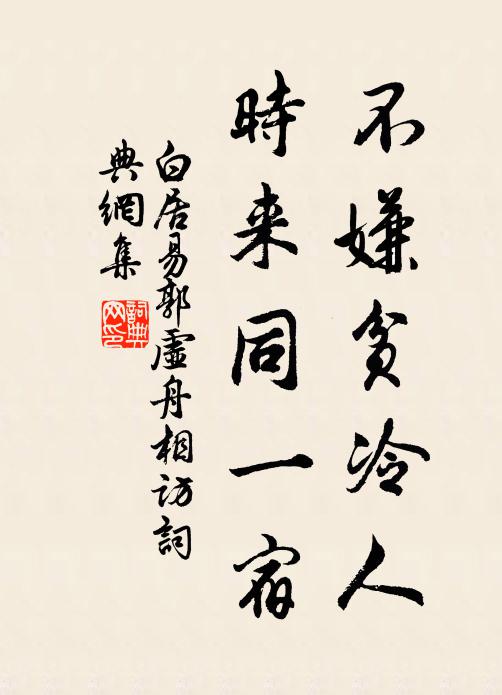 不嫌貧冷人
時来同一宿
白居易郭虛舟相訪詞
典網集
詞典
网印